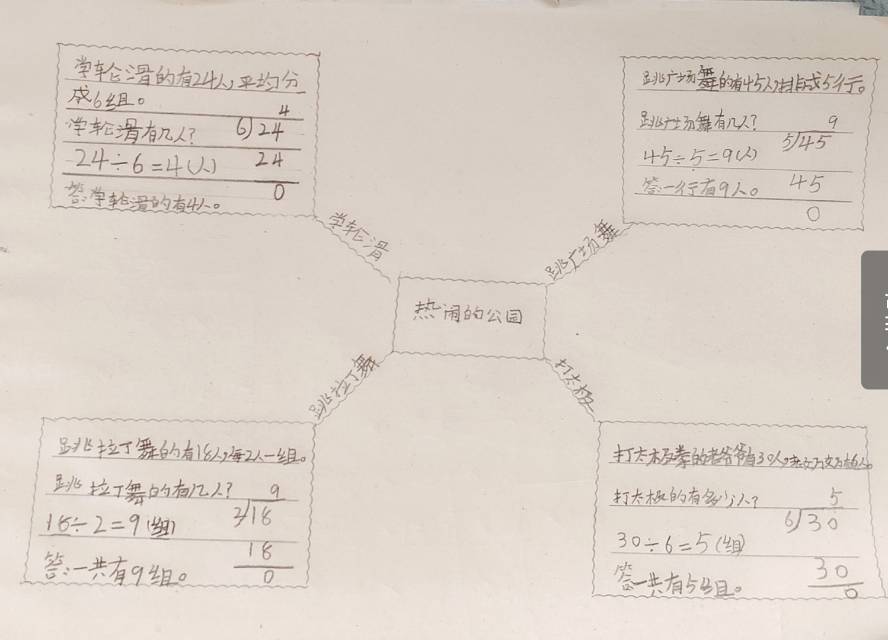 学轮滑的有24人,平均分
成6组。
学轮滑有几人?
24÷6=4(人)
答:学轮滑的有4人。
4
6)24
24
0
跳广场舞的有45人,排成5行。
跳广场舞有几人?
45÷5=9(人)
答:一行有9人。
9
5)45
45
0
学轮滑
跳广场舞
热闹的公园
跳拉丁舞
打太极
跳拉丁舞的有18人,每2人一组。
跳拉丁舞的有几人?
18÷2=9(组)
答:一共有9组。
9
2)18
18
0
打太极拳的老爷爷有30人,
打太极的有多少人?
30÷6=5(组)
答一共有5组。
5
6)30
30
0